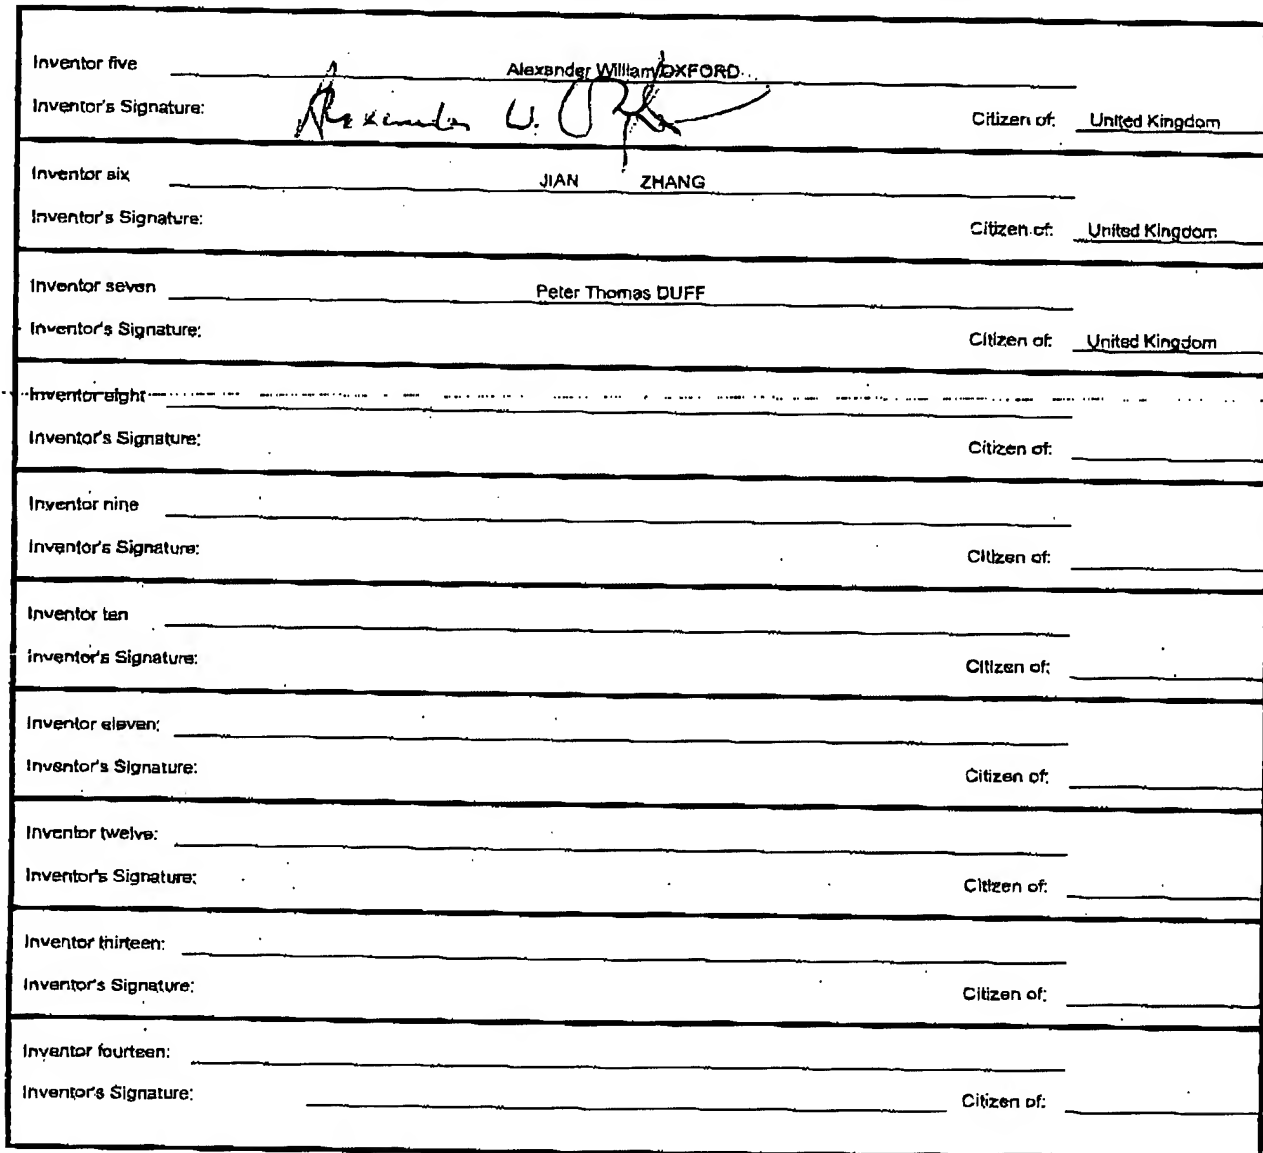 Inventor five Alexander William OXFORD
Inventor's Signature: Alexander W. Oxford Citizen of: United Kingdom
Inventor six JIAN ZHANG
Inventor's Signature: Citizen of: United Kingdom
Inventor seven Peter Thomas DUFF
Inventor's Signature: Citizen of: United Kingdom
Inventor eight
Inventor's Signature: Citizen of:
Inventor nine
Inventor's Signature: Citizen of:
Inventor ten
Inventor's Signature: Citizen of:
Inventor eleven:
Inventor's Signature: Citizen of:
Inventor twelve:
Inventor's Signature: Citizen of:
Inventor thirteen:
Inventor's Signature: Citizen of:
Inventor fourteen:
Inventor's Signature: Citizen of: